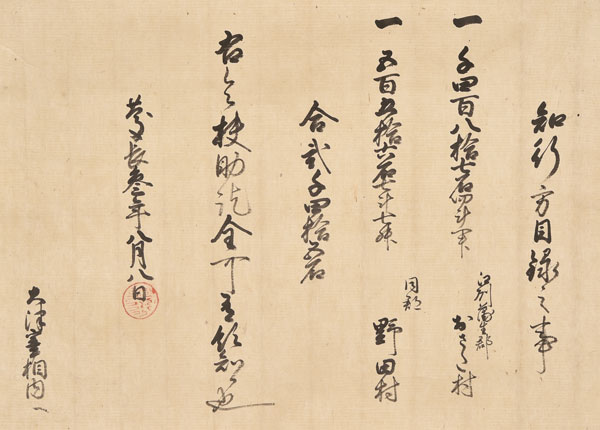 知行方目録之事
一 千四百八拾七石四斗三升
江州蒲生郡
村
一 五百五拾七石五斗七升
同郡
野田村
合弐千四拾五石
右令扶助訖全可有領知候也
慶長参年八月八日
大津宰相内へ